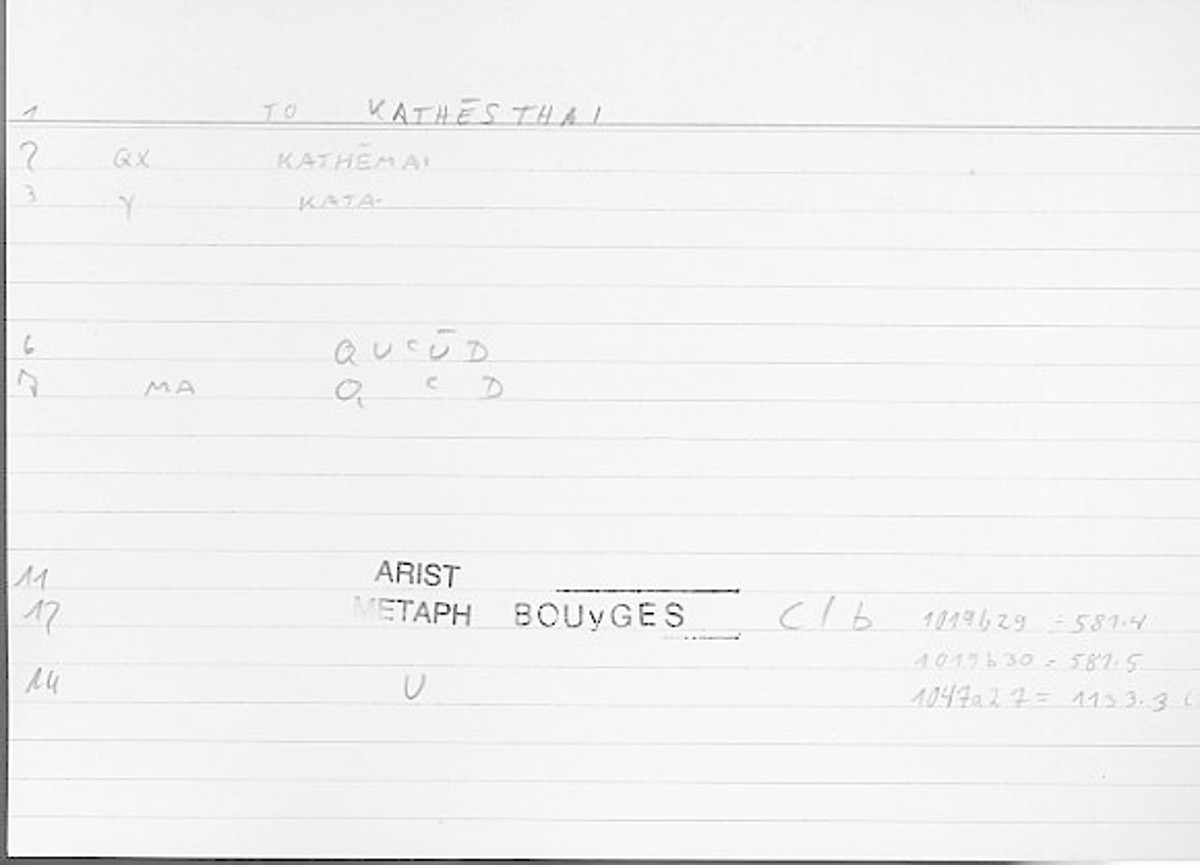 1 TO KATHĒSTHAI
2 QX KATHĒMAI
3 γ KATA-
6 QUcŪD
7 MA Q c D
11 ARIST
12 METAPH BOUyGES C/b 1019b29 = 581.4
1019b30 = 581.5
14 U 1047a27 = 1133.3